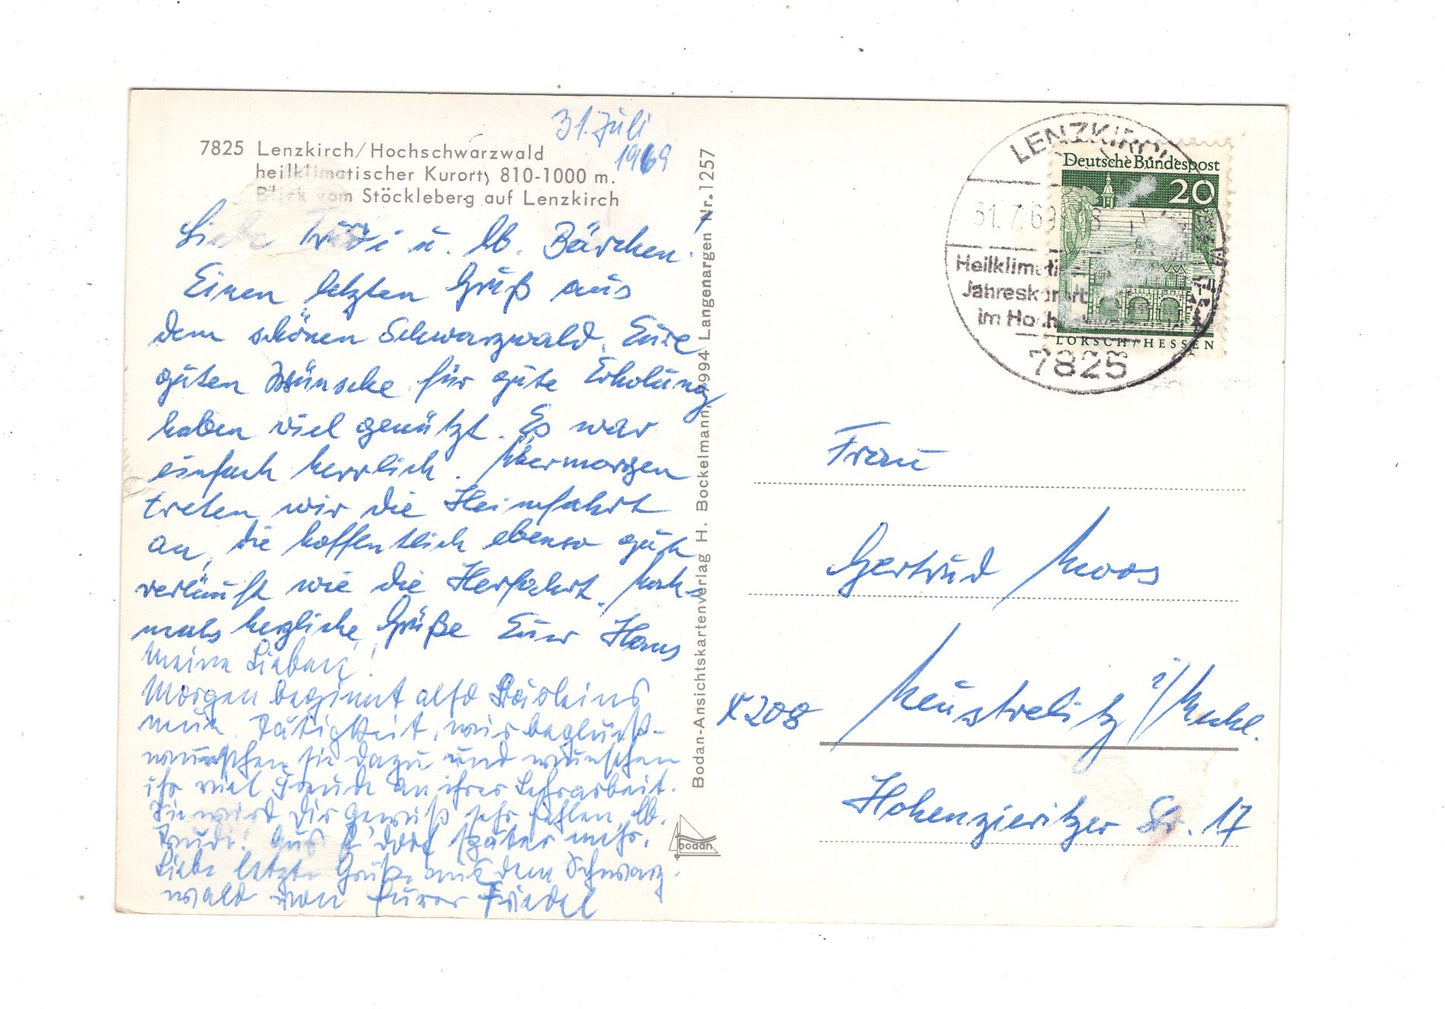 31. Juli
1969
7825 Lenzkirch/Hochschwarzwald
heilklimatischer Kurort, 810-1000 m.
Blick vom Stöckleberg auf Lenzkirch
Liebe Trudi u. lb. Bärchen!
Einen letzten Gruß aus
dem schönen Schwarzwald. Eure
guten Wünsche für gute Erholung
haben viel genützt. Es war
einfach herrlich. Übermorgen
treten wir die Heimfahrt
an, die hoffentlich ebenso gut
verläuft wie die Herfahrt. Noch-
mals herzliche Grüße Euer Hans
Meine Lieben!
Morgen beginnt also Bärleins
neue Tätigkeit, wir beglück-
wünschen sie dazu und wünschen
ihr viel Freude an ihrer Lehrarbeit.
Sie wird Dir gewiß sehr fehlen, lb.
Trudi! Aus D'dorf später mehr.
Liebe letzte Grüße aus dem Schwarz-
wald von Eurer Friedel
Bodan-Ansichtskartenverlag H. Bockelmann, 7994 Langenargen Nr.1257
bodan
LENZKIRCH
31.7.69
Heilklimatischer
Jahreskurort
im Hochschwarzwald
7825
Deutsche Bundespost
20
LORSCH/HESSEN
Frau
Gertrud Moos
X 208
Neustrelitz i/Meckl.
Hohenzieritzer Str. 17